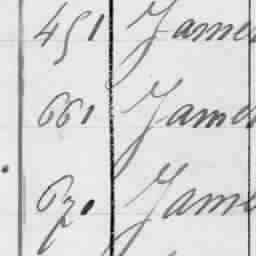 451 James
661 James
670 James